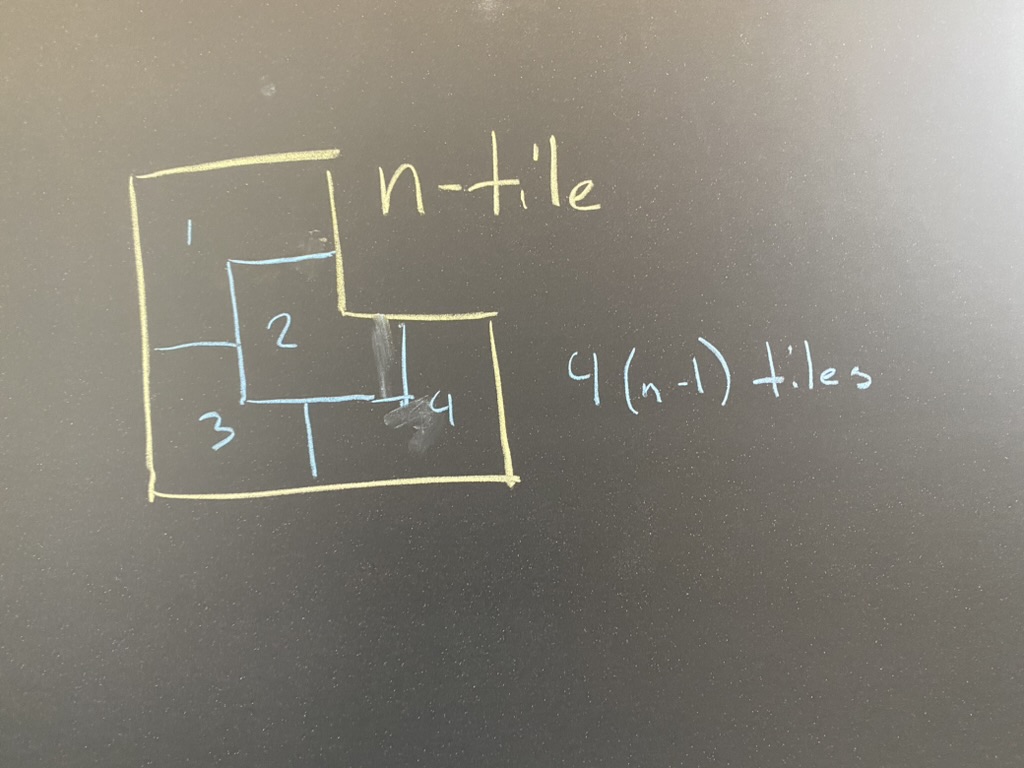 n-tile
1
2
3
4
4(n-1) tiles